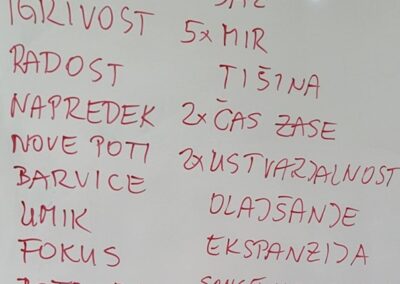 IGRIVOST
RADOST
NAPREDEK
NOVE POTI
BARVICE
UMIK
FOKUS
5x MIR
TIŠINA
2x ČAS ZASE
2x USTVARJALNOST
OLAJŠANJE
EKSPANZIJA